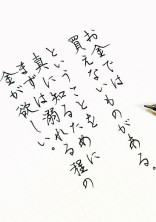 お金では
買えないものがある。
ということを
真に知るために
まずは溺れる程の
金が欲しい。